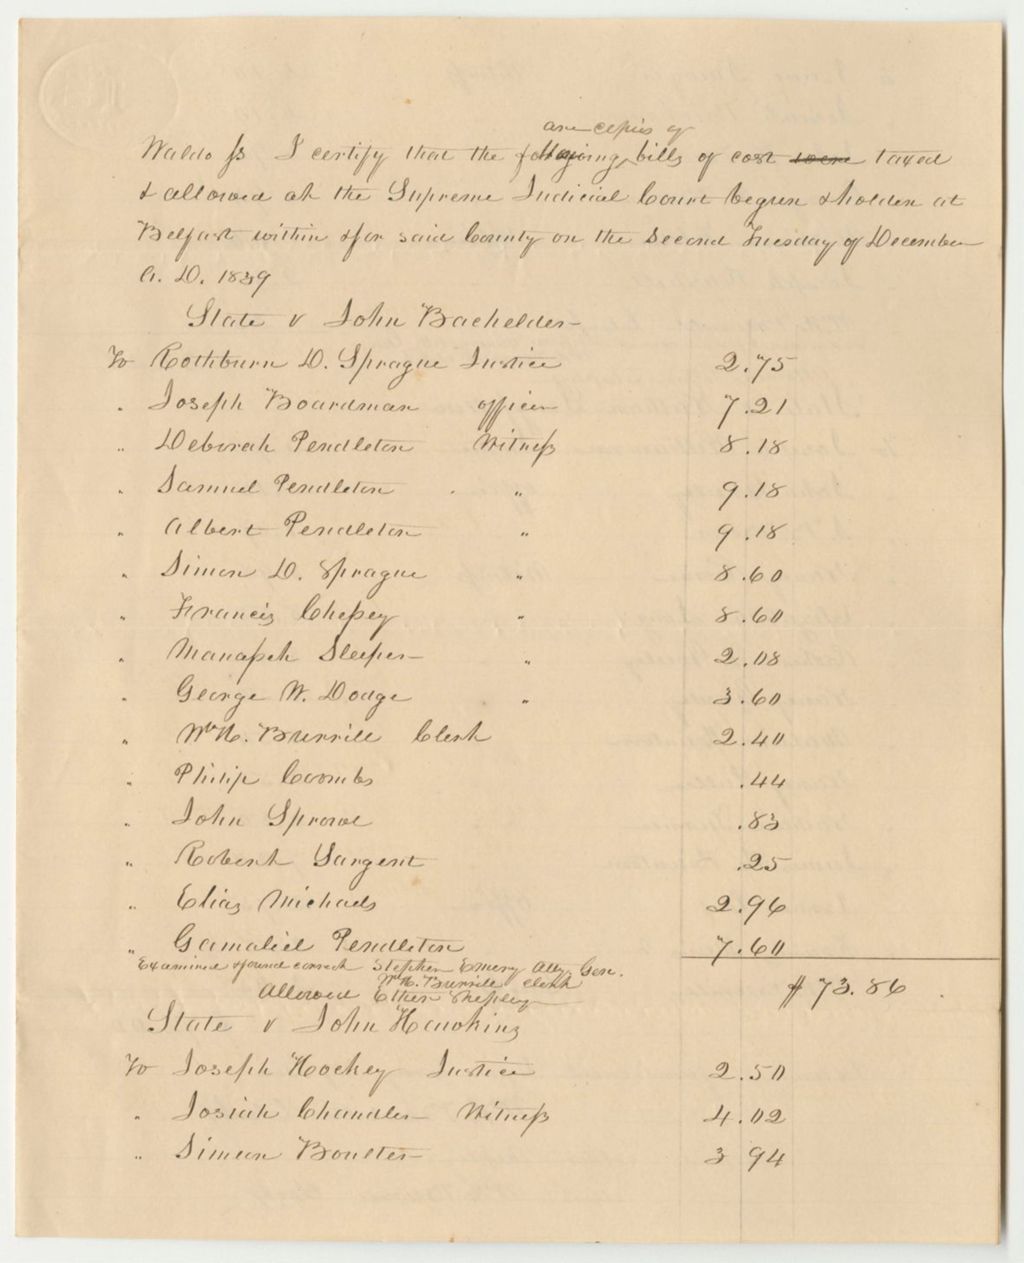 are copies of
Waldo ss I certify that the following bills of cost were taxed
& allowed at the Supreme Judicial Court begun & holden at
Belfast within & for said County on the second Tuesday of December
A. D. 1839
State v John Bachelder
To Rothburn D. Sprague Justice 2.75
" Joseph Boardman officer 7.21
" Deborah Pendleton Witness 8.18
" Samuel Pendleton " 9.18
" Albert Pendleton " 9.18
" Simon D. Sprague " 8.60
" Francis Chessey " 8.60
" Manasseh Sleeper " 2.08
" George W. Dodge " 3.60
" Wm H. Burrill Clerk 2.40
" Philip Coombs .44
" John Sprowl .83
" Robert Sargent .25
" Elias Michaels 2.96
" Gamaliel Pendleton 7.60
Examined & found correct Stephen Emery Atty. Gen.
Wm H. Burrill clerk
Allowed Ether Shepley
$73.86
State v John Hawkins
To Joseph Hockey Justice 2.50
" Josiah Chandler Witness 4.02
" Simeon Boulter 3 94